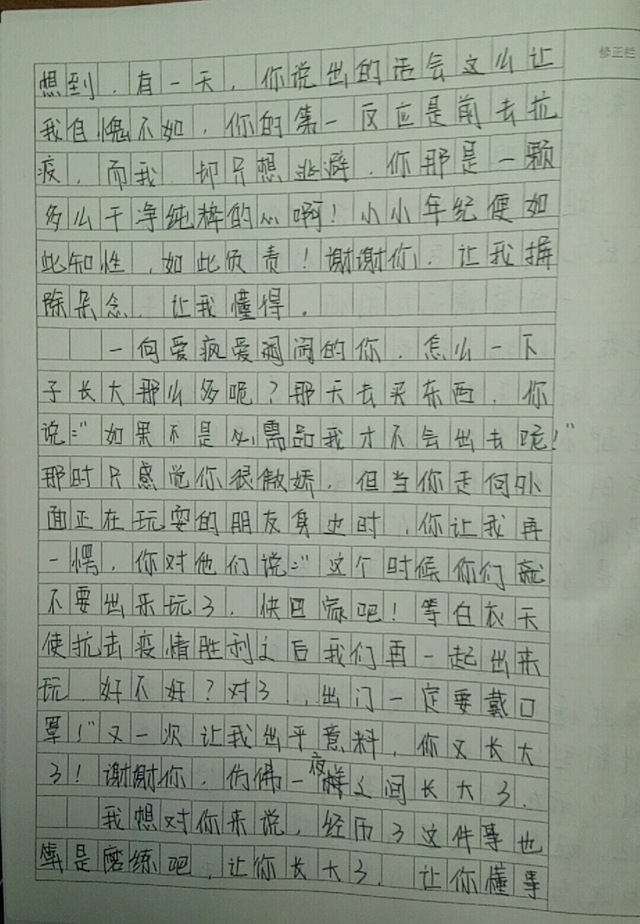 修正栏
想到，有一天，你说出的话会这么让
我自愧不如，你的第一反应是前去抗
疫，而我，却只想逃避，你那是一颗
多么干净纯粹的心啊！小小年纪便如
此知性，如此负责！谢谢你，让我摒
除杂念，让我懂得。
一向爱疯爱闹闹的你，怎么一下
子长大那么多呢？那天去买东西，你
说："如果不是必需品我才不会出去呢！"
那时只感觉你很傲娇，但当你走向外
面正在玩耍的朋友身边时，你让我再
一愣，你对他们说："这个时候你们就
不要出来玩了，快回家吧！等白衣天
使抗击疫情胜利之后我们再一起出来
玩，好不好？对了，出门一定要戴口
罩！"又一次让我出乎意料，你又长大
了！谢谢你，仿佛一夜之间长大了。
我想对你来说，经历了这件事也
算是磨练吧，让你长大了，让你懂事